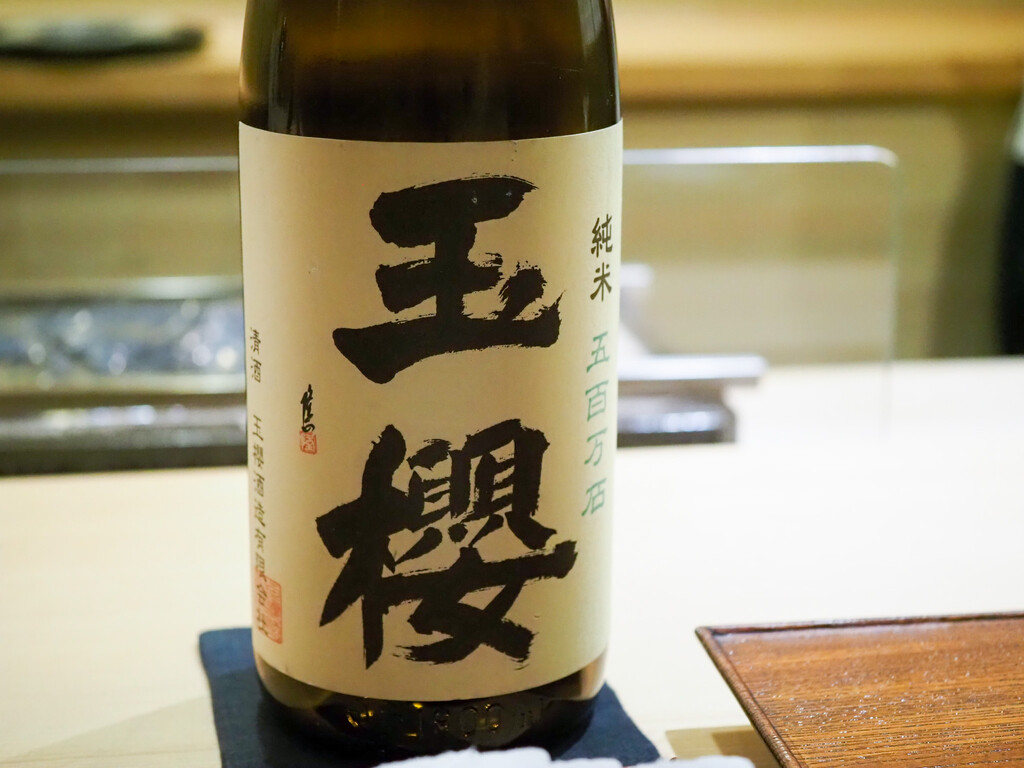 純米 五百万石
玉櫻
清酒 玉櫻酒造有限会社